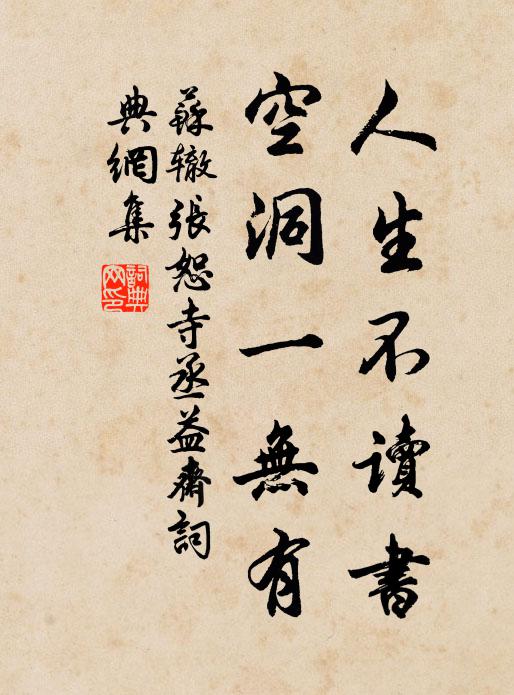 人生不讀書
空洞一無有
蘇辙張恕寺丞益齋詞
典網集
詞典
网印